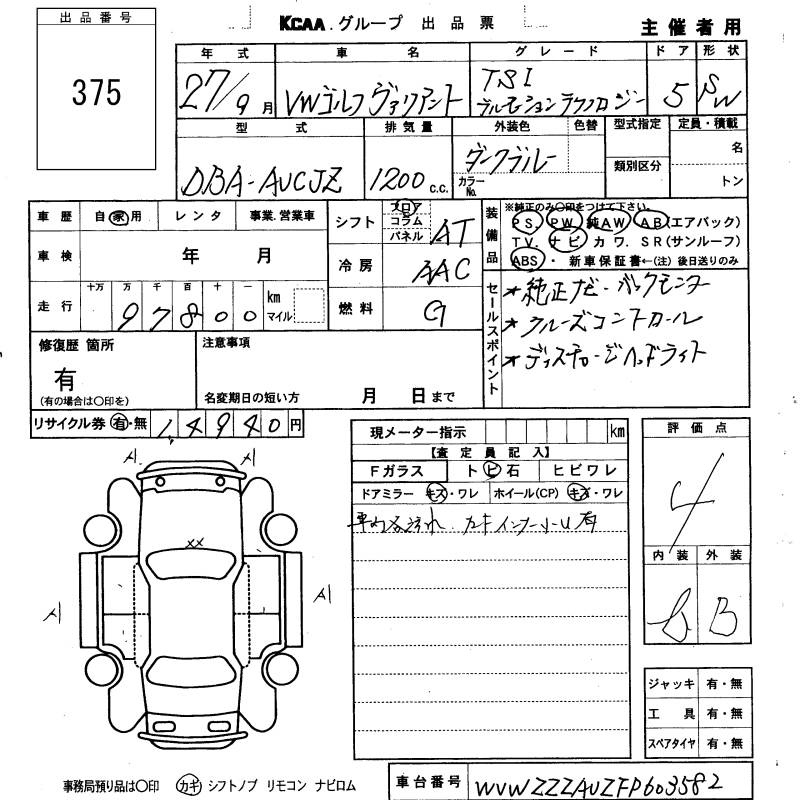 出品番号
375
KCAA.グループ 出品票
主催者用
年式 車名 グレード ドア 形状
27/9月 VWゴルフ ヴァリアント TSI 5 SW
型式 排気量 外装色 色替 型式指定 定員・積載
DBA-AUCJZ 1200 C.C. ダークブルー カラーNo. 類別区分 名
トン
車歴 自家用 レンタ 事業.営業車
車検 年 月
走行 十万 万 千 百 十 一 km マイル
97800
シフト フロア コラム パネル AT
冷房 AAC
燃料 G
装備品
※純正のみ○印をつけて下さい。
PS. PW 純AW AB(エアバック)
TV. ナビ カワ. SR(サンルーフ)
ABS ・ 新車保証書←(注) 後日送りのみ
セールスポイント
*純正ナビ・バックモニター
*クルーズコントロール
*ディスチャージヘッドライト
修復歴 箇所
有
(有の場合は○印を)
注意事項
名変期日の短い方 月 日まで
リサイクル券 有・無 14940円
現メーター指示 km
【査定員記入】
Fガラス トビ石 ヒビワレ
ドアミラー キズ・ワレ ホイール(CP) キズ・ワレ
評価点
4
内装 外装
B B
A1 A1
XX
A1 A1
ジャッキ 有・無
工具 有・無
スペアタイヤ 有・無
事務局預り品は○印 カギ シフトノブ リモコン ナビロム
車台番号 WVWZZZAUZFP603582